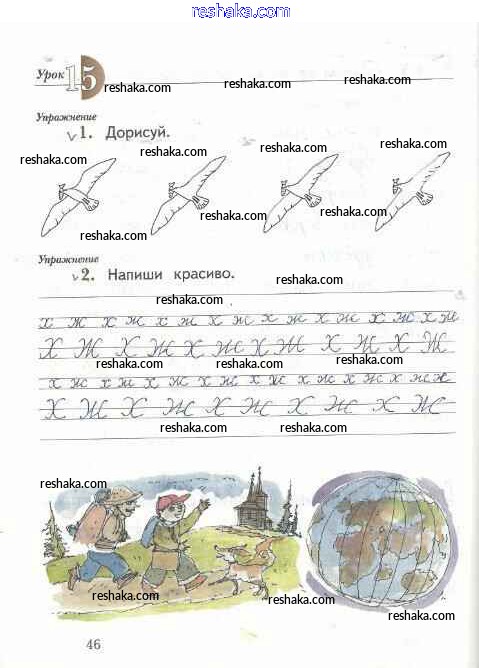 reshaka.com
Урок 15
reshaka.com reshaka.com reshaka.com
Упражнение
√1. Дорисуй.
reshaka.com reshaka.com reshaka.com reshaka.com
reshaka.com reshaka.com
reshaka.com reshaka.com
Упражнение
√2. Напиши красиво.
reshaka.com
reshaka.com
х ж х ж х ж х ж х ж х ж х ж х ж
Х Ж Х Ж Х Ж Х Ж Х Ж Х Ж
reshaka.com reshaka.com reshaka.com
х ж х ж х ж х ж х ж х ж х ж х ж ж
Х Ж Х Ж Х Ж Х Ж Х Ж
reshaka.com reshaka.com
reshaka.com reshaka.com
reshaka.com
reshaka.com reshaka.com
reshaka.com
46
reshaka.com